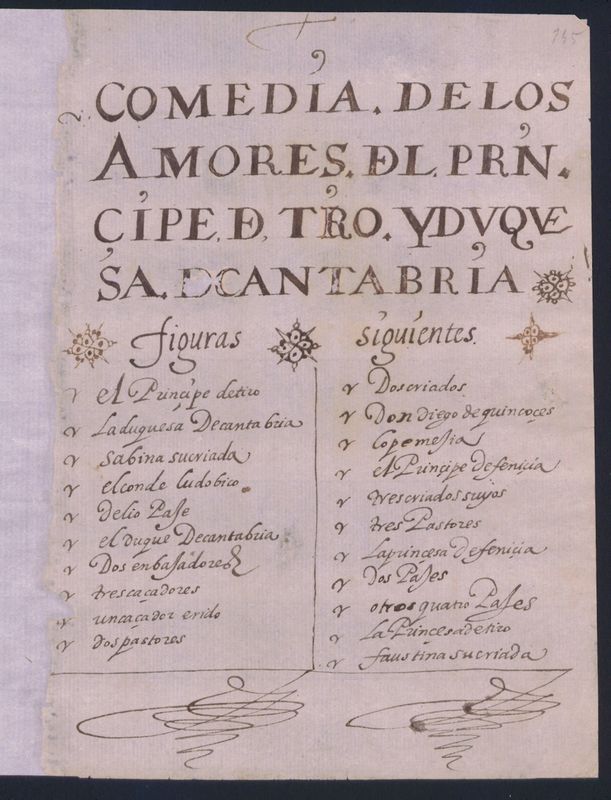 735
COMEDIA. DELOS
AMORES. ĐL. PRN.
CIPE. Đ. TRO. YDVQVE
SA. DCANTABRIA
figuras
el Principe detiro
La duquesa Decantabria
Sabina su criada
el conde Ludobico
delio Paje
el duque Decantabria
Dos enbajadores
tres caçadores
un caçador erido
dos pastores
siguientes.
Dos criados
Don diego de quincoçes
Lope mesia
el Prinçipe de feniçia
tres criados suyos
tres Pastores
La princesa de feniçia
dos Pajes
otros quatro Pajes
La Prinçesa de tiro
faustina su criada